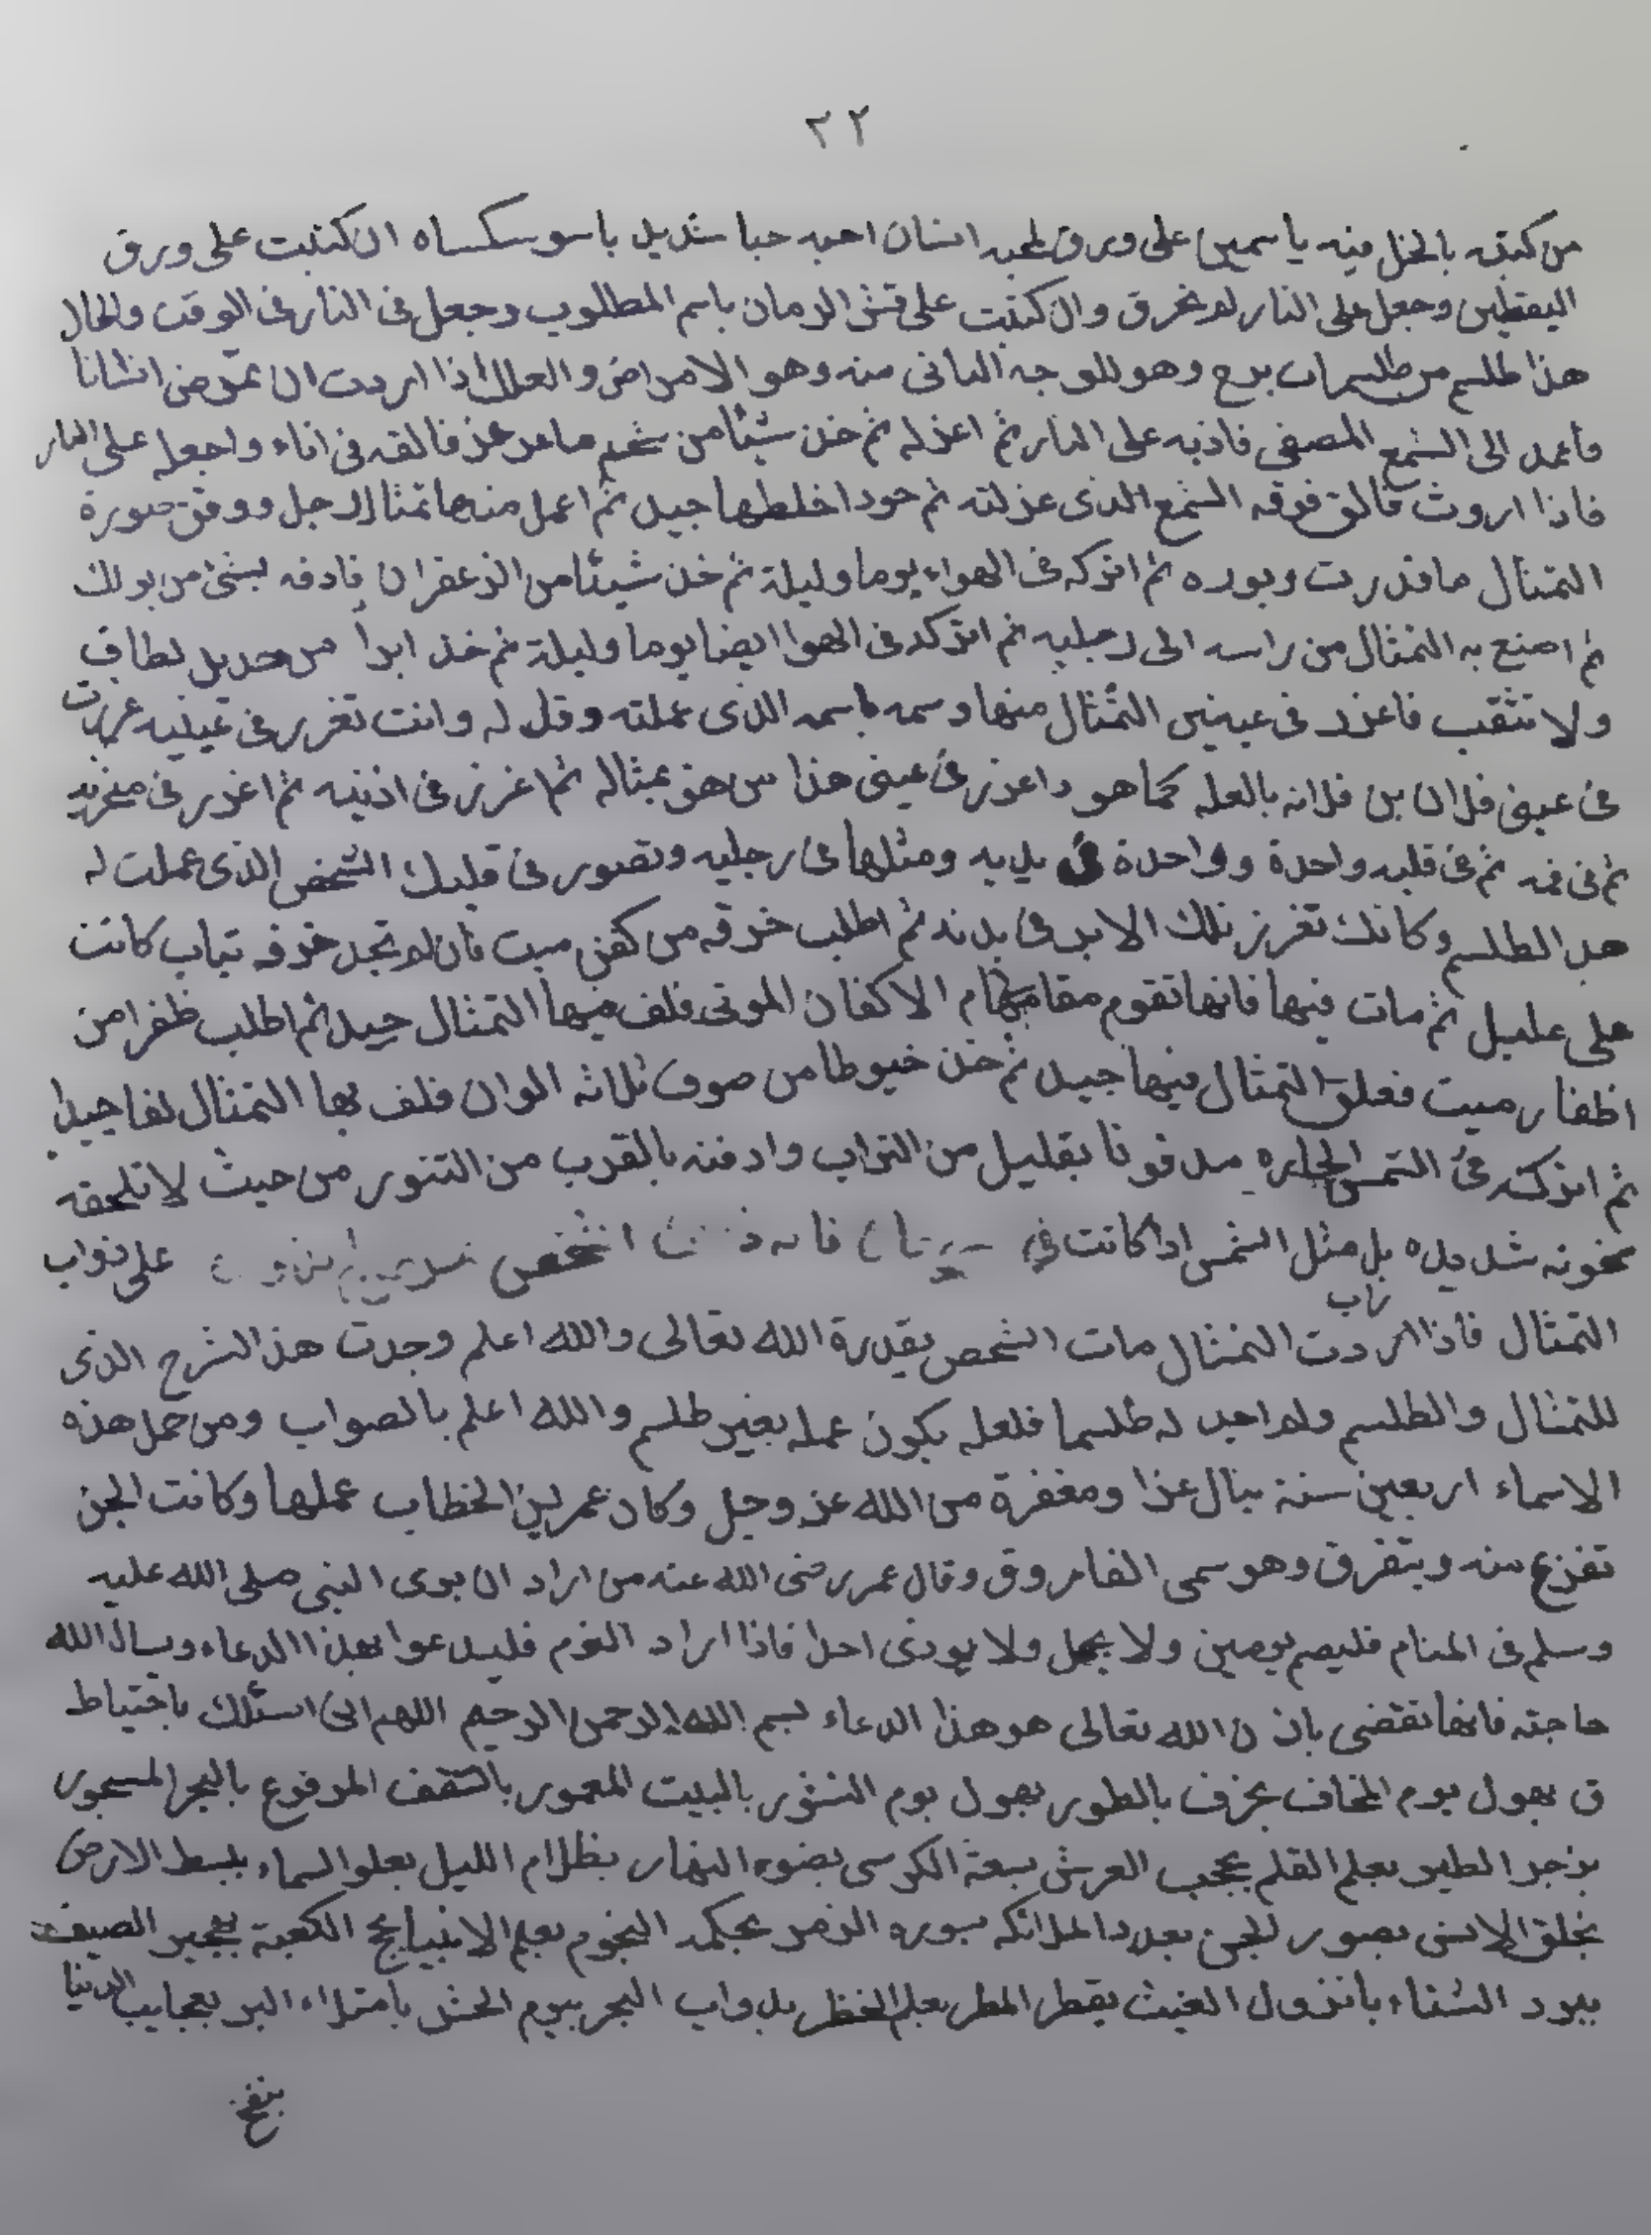 ٢٢
من كتبته بالخل فيه ياسمين على ورق لمحبه انسان احبه حبا شديد باسوسكساه ان كتبت على ورق
اليقطين وجعل على النار لم تحرق وان كتبت على قشر الرمان باسم المطلوب وجعل فى النار فى الوقت والحال
هذا طلسم من طلسمات برج وهو للوجه الثانى منه وهو الامراض والعلل اذا اردت ان تمرض انسانا
فاعمد الى الشمع المصفى فاذبه على النار ثم اعزله ثم خذ شيئا من شحم ماعز فالقه فى اناء واجعله على النار
فاذا اروث فالق فوقه الشمع الذى عزلته ثم خود اخلطها جيد ثم اعمل منها تمثال الرجل ووفق صورة
التمثال ما قدرت وبوده ثم اتركه فى الهواء يوما وليلة ثم خذ شيئا من الزعفران فادفه بشئ من بولك
ثم اصنع به التمثال من راسه الى رجليه ثم اتركه فى الهوا ايضا يوما وليلة ثم خذ ابرا من حديد لطاف
ولا تثقب فاغرز فى عينين التمثال منها وسمه باسمه الذى عملته وقل له وانت تغرر فى عينيه غرزت
فى عينى فلان بن فلانه بالعله كما هو واغرز فى عينى هذا من هو بمثاله ثم اغرز فى اذنيه ثم اغرز فى منخريه
ثم فى فمه ثم فى قلبه واحدة وواحدة فى يديه ومثلها فى رجليه وتصور فى قلبك الشخص الذى عملت له
هذ الطلسم وكانك تغرز تلك الابر فى بدنه ثم اطلب خرقه من كفن ميت فان لم تجد خرقه ثياب كانت
على عليل ثم مات فيها فانها تقوم مقام الاكفان الموتى فلف فيها التمثال جيد ثم اطلب ظفرا من
اظفار ميت فعلق التمثال فيها جيد ثم خذ خيوطا من صوف ثلاثه الوان فلف بها التمثال لفا جيدا
ثم اتركه فى الشمس الحاره مدفونا بقليل من التراب وادفنه بالقرب من التنور من حيث لا تلحقه
سخونه شديده بل مثل الشمس اذا كانت فى فانه الشخص على ذواب
التمثال فاذا اردت ذاب التمثال مات الشخص بقدرة الله تعالى والله اعلم وجدت هذ الشرح الذى
للتمثال والطلسم ولم اجد له طلسما فلعله يكون عمله بغير طلسم والله اعلم بالصواب ومن حمل هذه
الاسماء اربعين سنة ينال عزا ومغفرة من الله عز وجل وكان عمر بن الخطاب عملها وكانت الجن
تفزع منه ويتفرق وهو سمى الفاروق وقال عمر رضى الله عنه من اراد ان يرى النبى صلى الله عليه
وسلم فى المنام فليصم يومين ولا يجهل ولا يوذى احدا فاذا اراد النوم فليدعوا بهذا الدعاء ويسال الله
حاجته فانها تقضى باذن الله تعالى هو هذا الدعاء بسم الله الرحمن الرحيم اللهم انى اسئلك باختياط
ق بهول يوم المخاف بحرف بالطور بهول يوم النشور بالبيت المعمور بالسقف المرفوع بالبحر المسجور
بزجر الطير بعلم القلم بحجب العرش بسعة الكرسى بضوء النهار بظلام الليل بعلو السماء ببسط الارض
بخلق الانس بصور للجن بعدد الملائكه بسوره الزمر بحكمه النجوم بعلم الانبيا بحج الكعبة بهجير الصيف
ببرد الشتاء بانزول الغيث بقطر المطر بعلم الخظر بدواب البحر بيوم الحشر بامتلاء البر بعجايب الدنيا
بنفخ